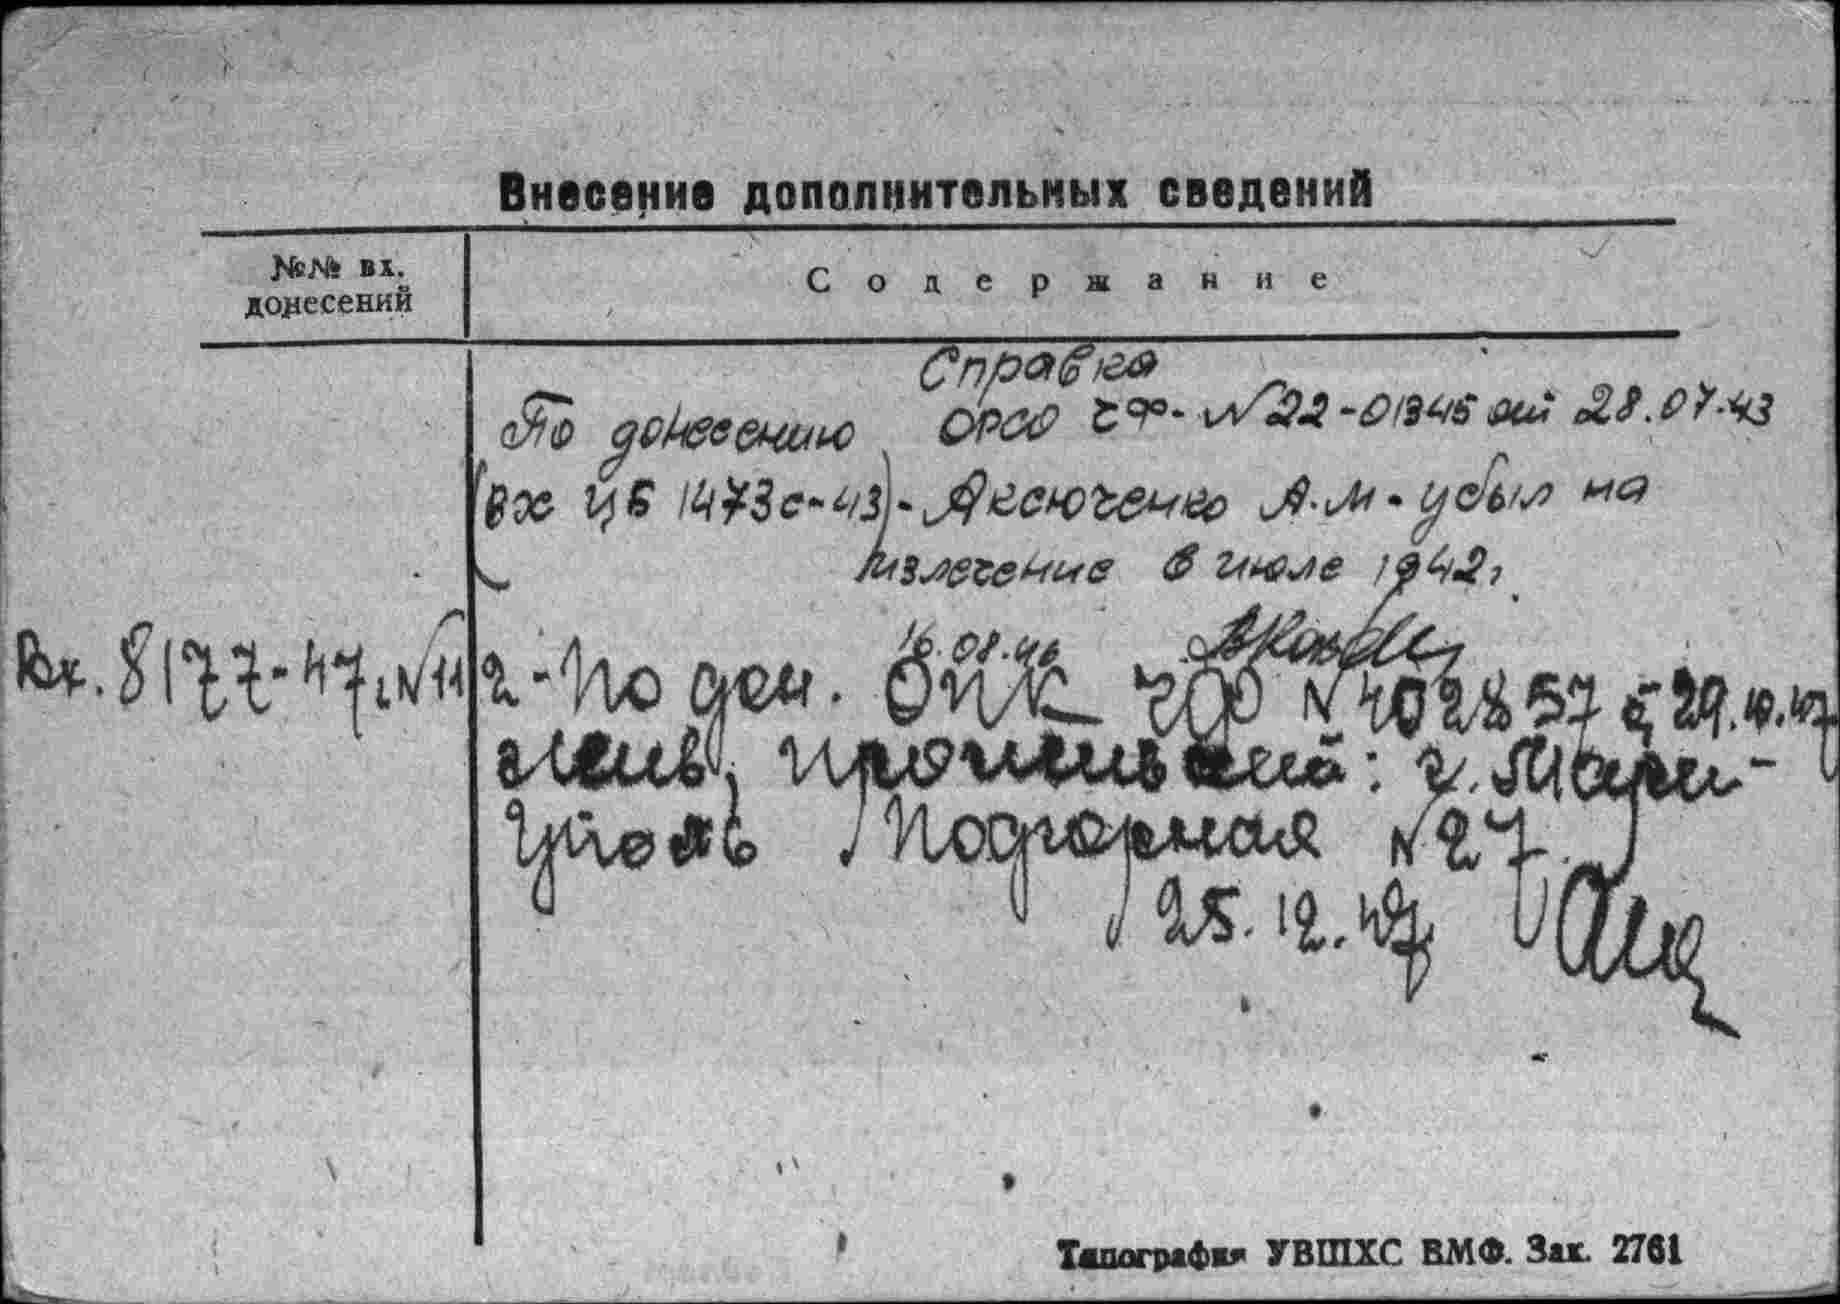 Внесение дополнительных сведений
№№ вх.
донесений
Содержание
Справка
По донесению ОРСО ЧФ - №22-01345 от 28.07.43
(вх ЦБ 1473с-43) - Аксюченко А.М - убыл на
излечение в июле 1942г.
16.08.46
Вх. 8177-47г. №11
2 - По дон. ОПК ЧФ №402857 с 29.10.47
жив, проживает: г. Мари-
уполь Подгорная №27.
25.12.47г
Типография УВШХС ВМФ. Зак. 2761